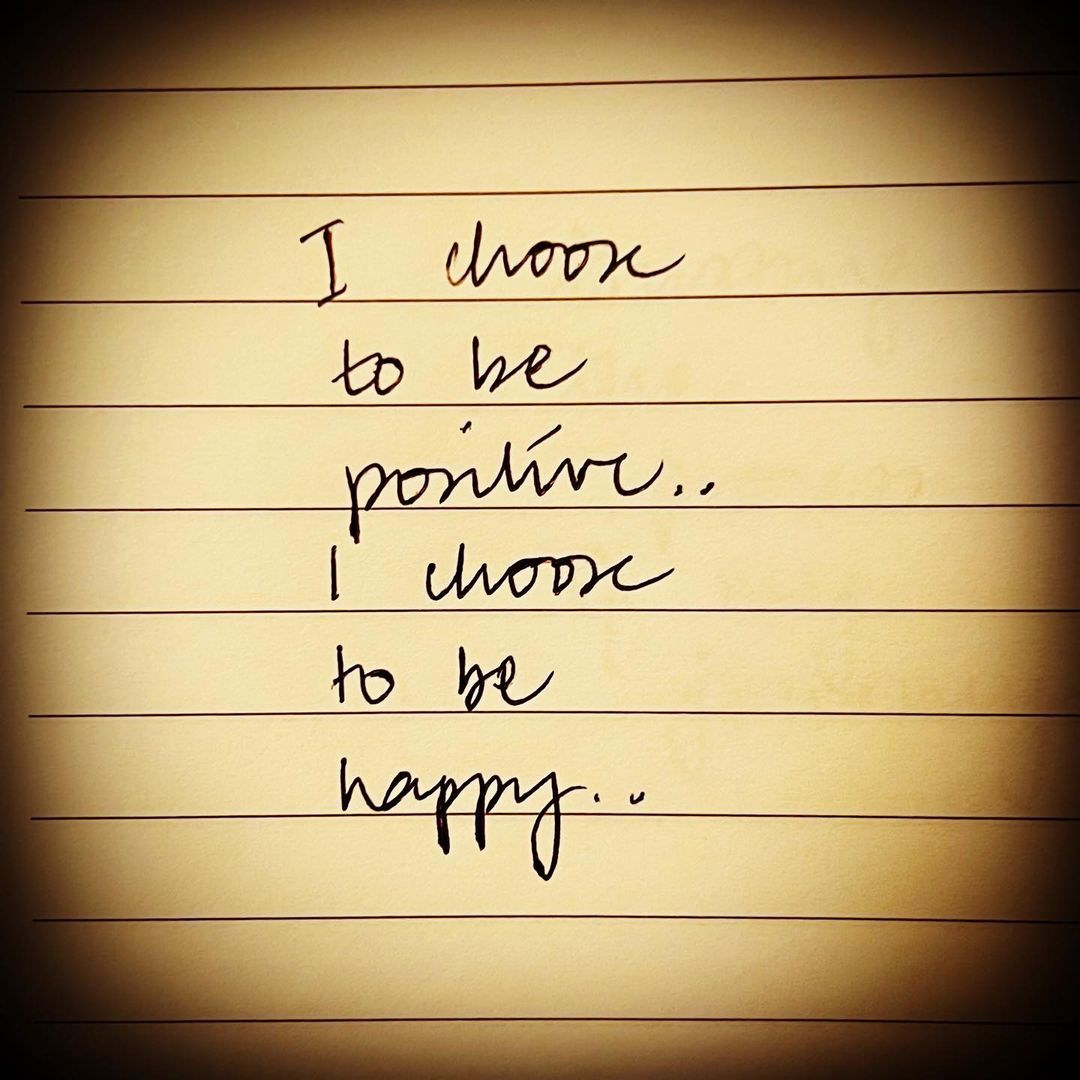 I choose
to be
positive..
I choose
to be
happy..